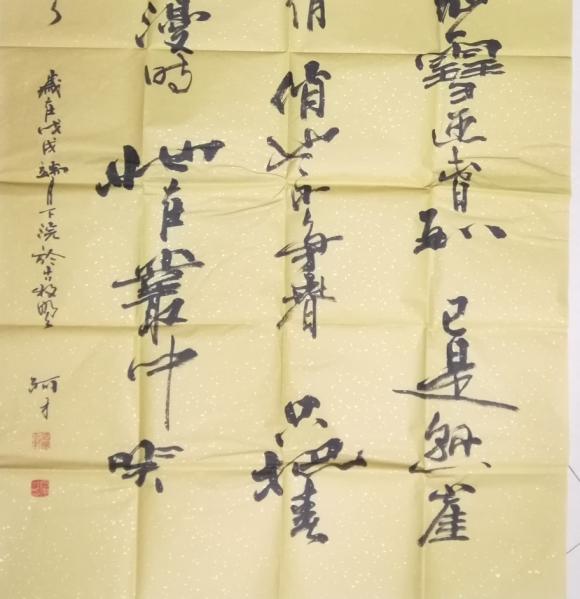 雪迎春到 已是懸崖
俏 俏也不爭春 只把春
漫時 她在叢中笑
歲在戊戌端月下浣於古